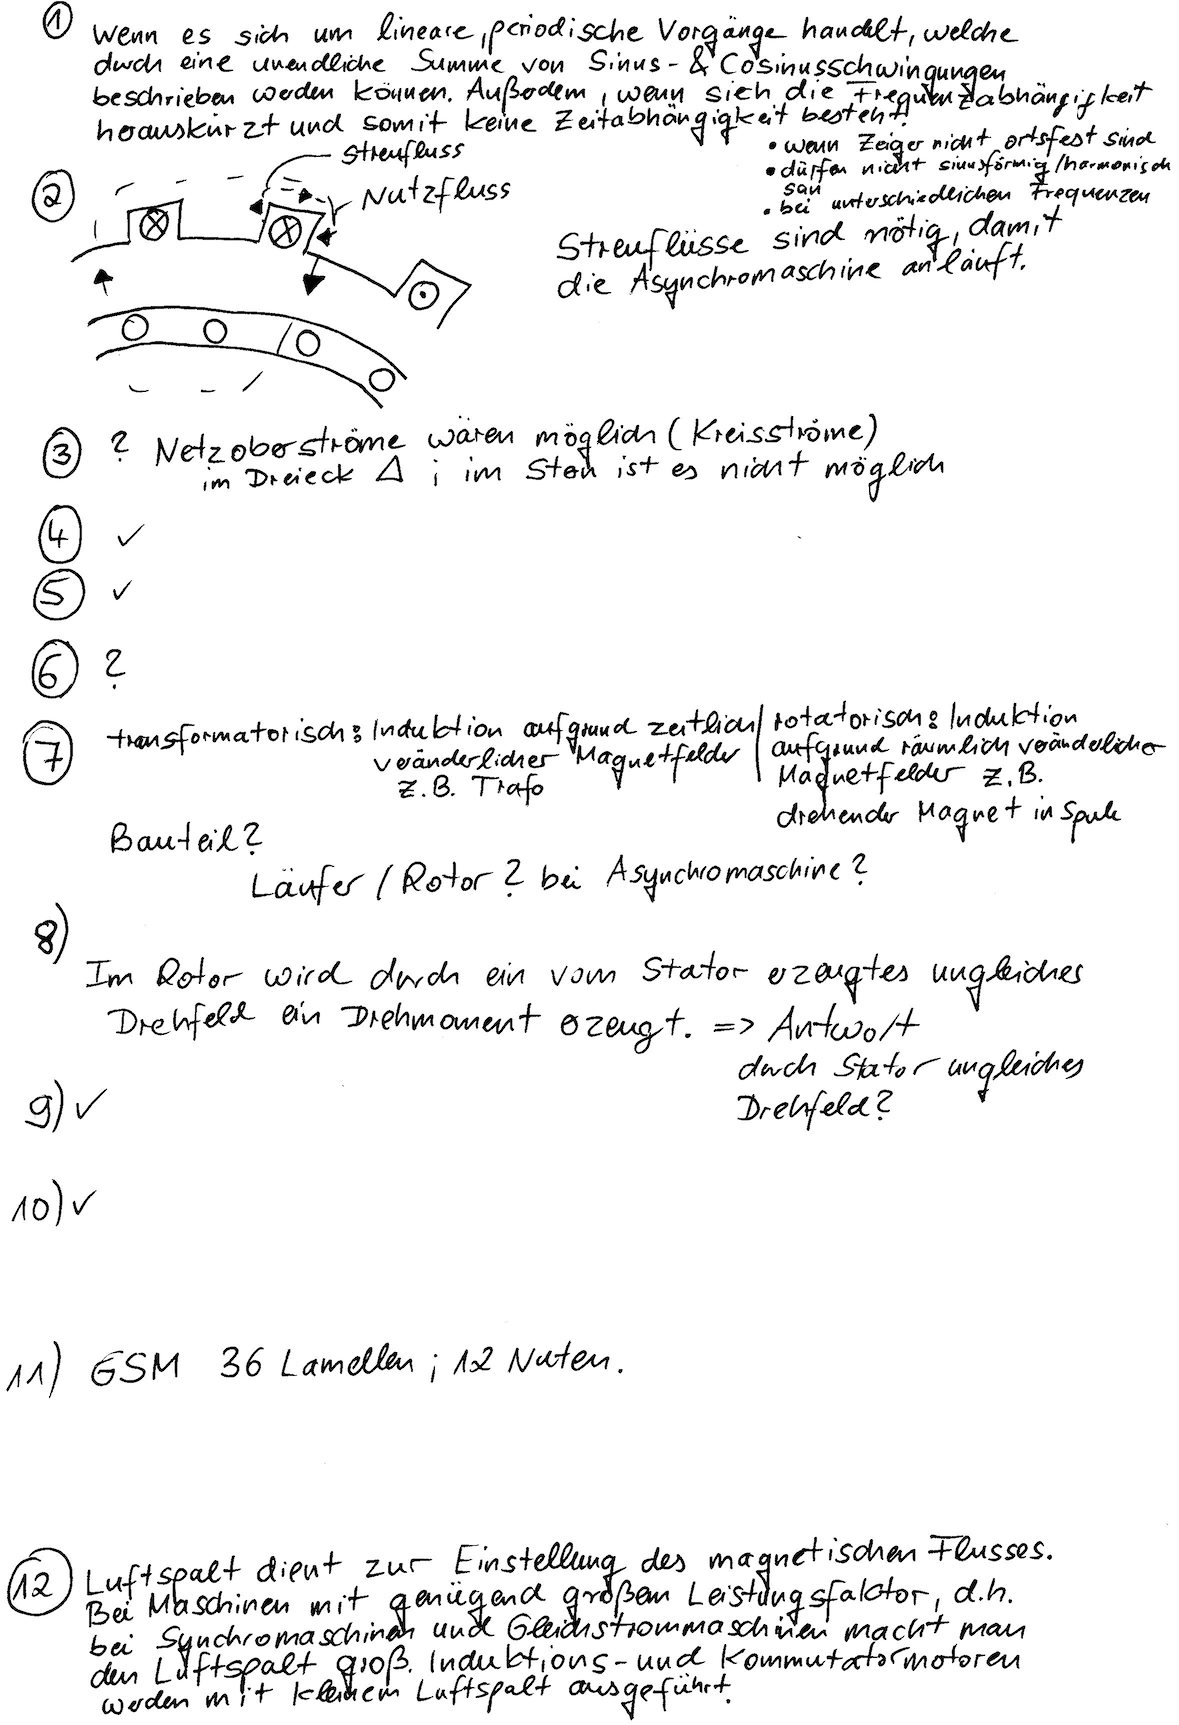 ① Wenn es sich um lineare, periodische Vorgänge handelt, welche
durch eine unendliche Summe von Sinus- & Cosinusschwingungen
beschrieben werden können. Außerdem, wenn sich die Frequenzabhängigkeit
herauskürzt und somit keine Zeitabhängigkeit besteht!
• wenn Zeiger nicht ortsfest sind
• dürfen nicht sinusförmig/harmonisch
sein
• bei unterschiedlichen Frequenzen
②
Streufluss
Nutzfluss
Streuflüsse sind nötig, damit
die Asynchromaschine anläuft.
③ ? Netzoberströme wären möglich (Kreisströme)
im Dreieck Δ ; im Stern ist es nicht möglich
④ ✓
⑤ ✓
⑥ ?
⑦ transformatorisch: Induktion aufgrund zeitlich
veränderlicher Magnetfelder
z.B. Trafo
rotatorisch: Induktion
aufgrund räumlich veränderlicher
Magnetfelder z.B.
drehender Magnet in Spule
Bauteil?
Läufer / Rotor? bei Asynchromaschine?
8)
Im Rotor wird durch ein vom Stator erzeugtes ungleiches
Drehfeld ein Drehmoment erzeugt. => Antwort
durch Stator ungleiches
Drehfeld?
9) ✓
10) ✓
11) GSM 36 Lamellen ; 12 Nuten.
⑫ Luftspalt dient zur Einstellung des magnetischen Flusses.
Bei Maschinen mit genügend großem Leistungsfaktor, d.h.
bei Synchromaschinen und Gleichstrommaschinen macht man
den Luftspalt groß. Induktions- und Kommutatormotoren
werden mit kleinem Luftspalt ausgeführt.